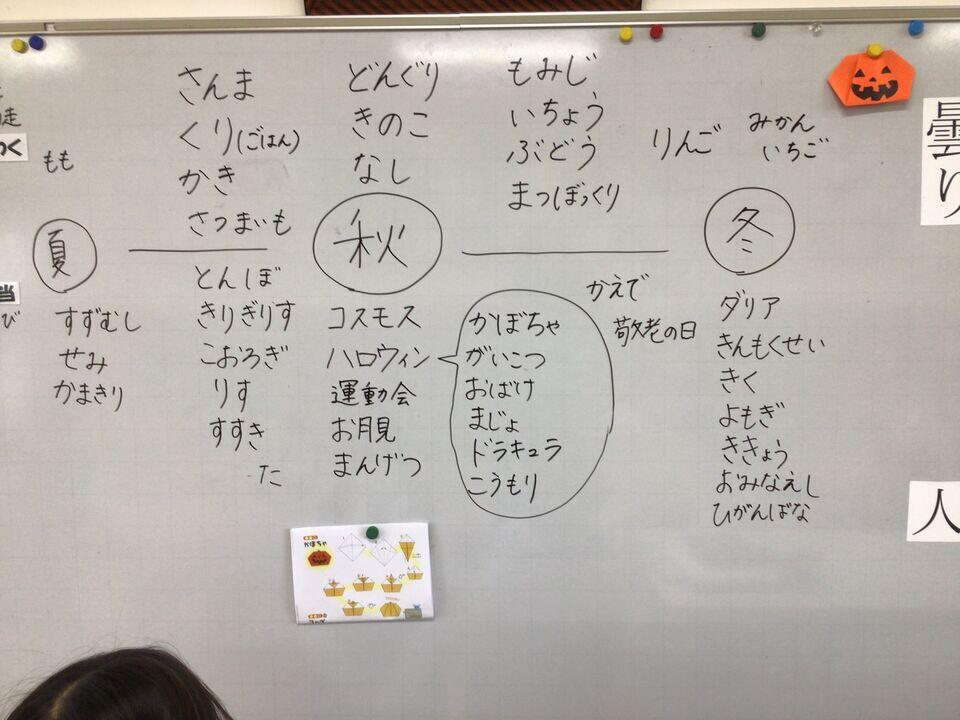 もも
夏
すずむし
せみ
かまきり
さんま
くり(ごはん)
かき
さつまいも
とんぼ
きりぎりす
こおろぎ
りす
すすき
た
どんぐり
きのこ
なし
秋
コスモス
ハロウィン
運動会
お月見
まんげつ
かぼちゃ
がいこつ
おばけ
まじょ
ドラキュラ
こうもり
もみじ
いちょう
ぶどう
まつぼっくり
かえで
敬老の日
りんご
みかん
いちご
冬
ダリア
きんもくせい
きく
よもぎ
ききょう
おみなえし
ひがんばな
曇り
人
かぼちゃ
走
つく
当
び